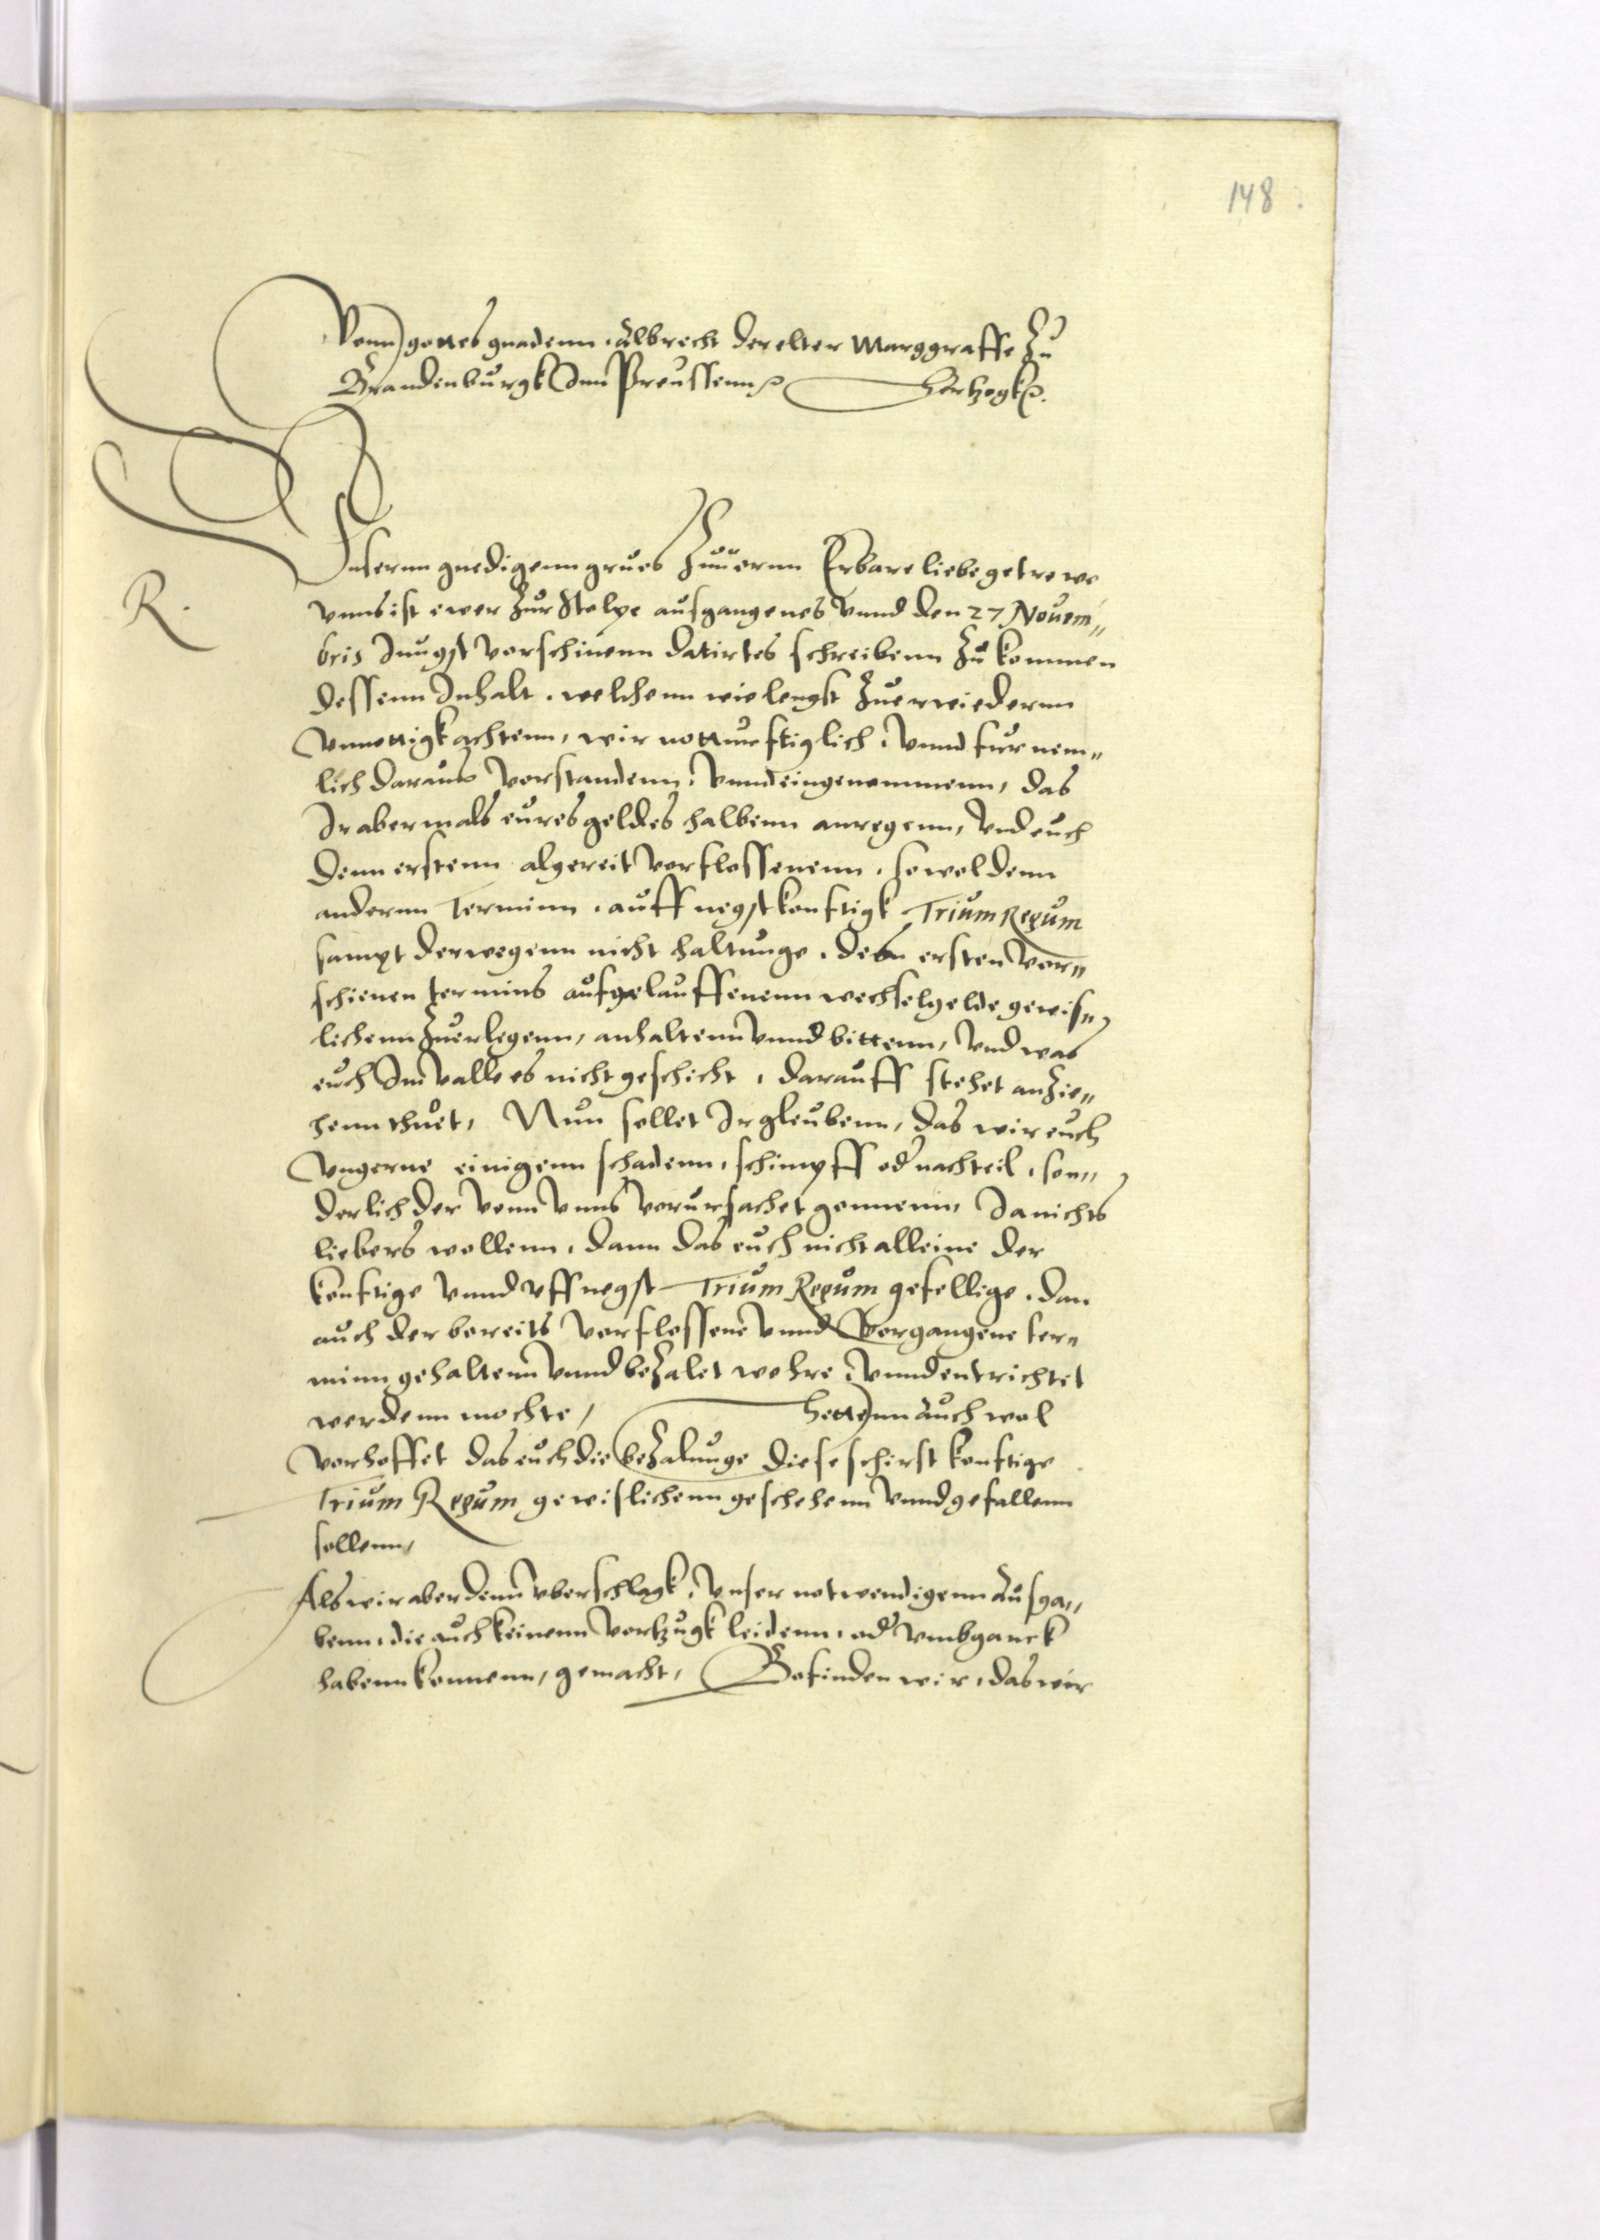 148
Vonn gottes gnadenn Albrecht der elter Marggraffe Zu
Brandenburgk Inn Preussenn etc Hertzogk etc.
Unsernn gnedigenn grues Zuuornn Erbare liebe getrewe
R.
vnns ist ewer Zur Stolpe ausgangenes vnnd den 27 Nouem„
bris Jungst vorschinenn datirtes schreibenn Zu kommen
dessenn Inhalt, welchenn wie lengst Zuerwiedernn
vnnottigk achtenn, wir notturftiglich, vnnd furnem„
lich daraus vorstandenn, vnnd eingenommenn, das
Ir abermals eures geldes halbenn anregenn, vnd euch
denn erstenn algereit vorflossenenn, so wol denn
andernn Terminn, auff negstkonftigk Trium Regum
sampt derwegenn nicht haltunge, des ersten vor„
schienen termins aufgelauffenenn wechselgelde gewis„
lichenn Zuerlegenn, anhaltenn vnnd bittenn, vnd was
euch Im valle es nicht geschicht, darauff stehet anzie„
henn thuet, Nun sollet Ir gleubenn, das wir euch
vngerne einigenn schadenn, schimpff od nachteil, son„
derlich der vonn vnns vorursachet gonnenn, Ja nichts
liebers wollenn, dann das euch nicht alleine der
konftige vnnd vff negst Trium Regum gefellige, dan
auch der bereits vorflossene vnnd vorgangene ter„
minn gehaltenn vnnd beZalet wehre, vnnd entrichtet
werdenn mochte, Hettenn auch wol
vorhoffet das euch die beZalunge diese schirst konftige
Trium Regum gewislichenn geschehenn vnnd gefallenn
sollenn,
Als wir aber denn vberschlagk, vnser notwendigenn Ausga„
benn, die auch keinenn vortzugk leidenn, od vmbganck
habenn konnenn, gemacht, Befinden wir, das wir